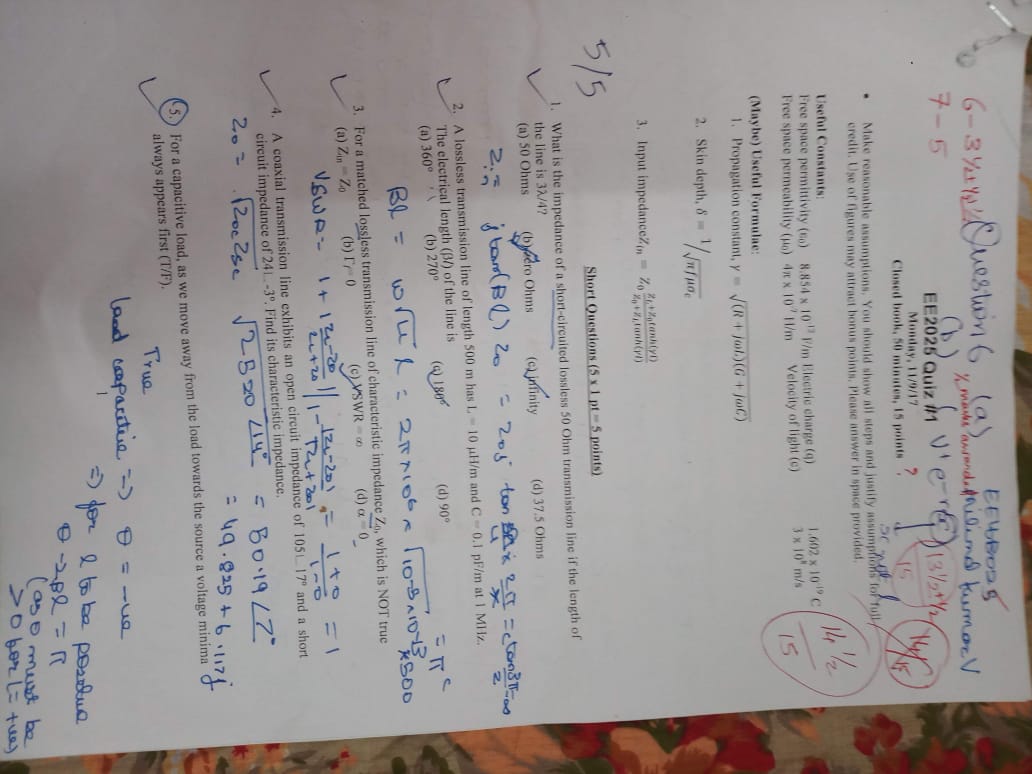 Question 6 (a)
EE16B025
6 – 3 ½ + ½
½ marks awarded
Nilend Kumar V
7 – 5
(b)
V⁺ e
13 ½ + ½
15
14/15
EE2025 Quiz #1
Monday, 11/9/17
Closed book, 50 minutes, 15 points ?
• Make reasonable assumptions. You should show all steps and justify assumptions for full
credit. Use of figures may attract bonus points. Please answer in space provided.
14 ½
15
Useful Constants:
Free space permittivity (ε₀) 8.854 x 10⁻¹² F/m Electric charge (q) 1.602 x 10⁻¹⁹ C
Free space permeability (μ₀) 4π x 10⁻⁷ H/m Velocity of light (c) 3 x 10⁸ m/s
(Maybe) Useful Formulae:
1. Propagation constant, γ = √(R + jωL)(G + jωC)
2. Skin depth, δ = 1/√πfμσc
3. Input impedanceZin = Z₀ ZL+Z₀tanh(γl) / Z₀+ZLtanh(γl)
5/5
Short Questions (5 x 1 pt = 5 points)
1. What is the impedance of a short-circuited lossless 50 Ohm transmission line if the length of
the line is 3λ/4?
(a) 50 Ohms (b) Zero Ohms (c) infinity (d) 37.5 Ohms
Zin = j tan(βl) Z₀ = Z₀ j tan 3λ/4 × 2π/λ = c tan 3π/2 = ∞
2. A lossless transmission line of length 500 m has L = 10 μH/m and C = 0.1 pF/m at 1 MHz.
The electrical length (βl) of the line is
(a) 360° (b) 270° (c) 180° (d) 90°
= πᶜ
βl = ω√LC l = 2π×10⁶ × √10⁻⁵×10⁻¹³ ×500
3. For a matched lossless transmission line of characteristic impedance Z₀, which is NOT true
(a) Zin = Z₀ (b) Γ = 0 (c) VSWR = ∞ (d) α = 0
VSWR = 1 + |ZL-Z0/ZL+Z0| / 1 - |ZL-Z0|/|ZL+Z0| = 1+0/1-0 = 1
4. A coaxial transmission line exhibits an open circuit impedance of 105∟17° and a short
circuit impedance of 24∟-3°. Find its characteristic impedance.
Z₀ = √ZocZsc √2520 ∠14° = 50.19∠7°
= 49.825 + 6.117j
5. For a capacitive load, as we move away from the load towards the source a voltage minima
always appears first (T/F).
True
load capacitive => θ = -ve
=> for l to be positive
θ - 2βl = π
(as θ must be
> 0 for l = +ve)